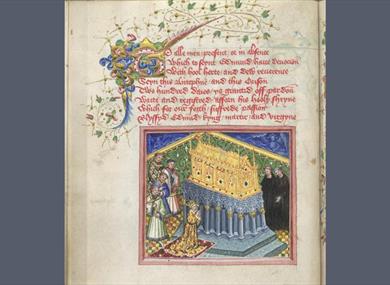 To alle men present or in absence
Which to seynt Edmund haue deuocion
With hool herte and dewe reuerence
Seyn this Antephne and this Orison
Two hundred daies ys graunted off pardoun
Write and registred afforn his holy shryne
Which for our feith suffrede passioun
Blyssyd Edmund kyng martir and virgyne